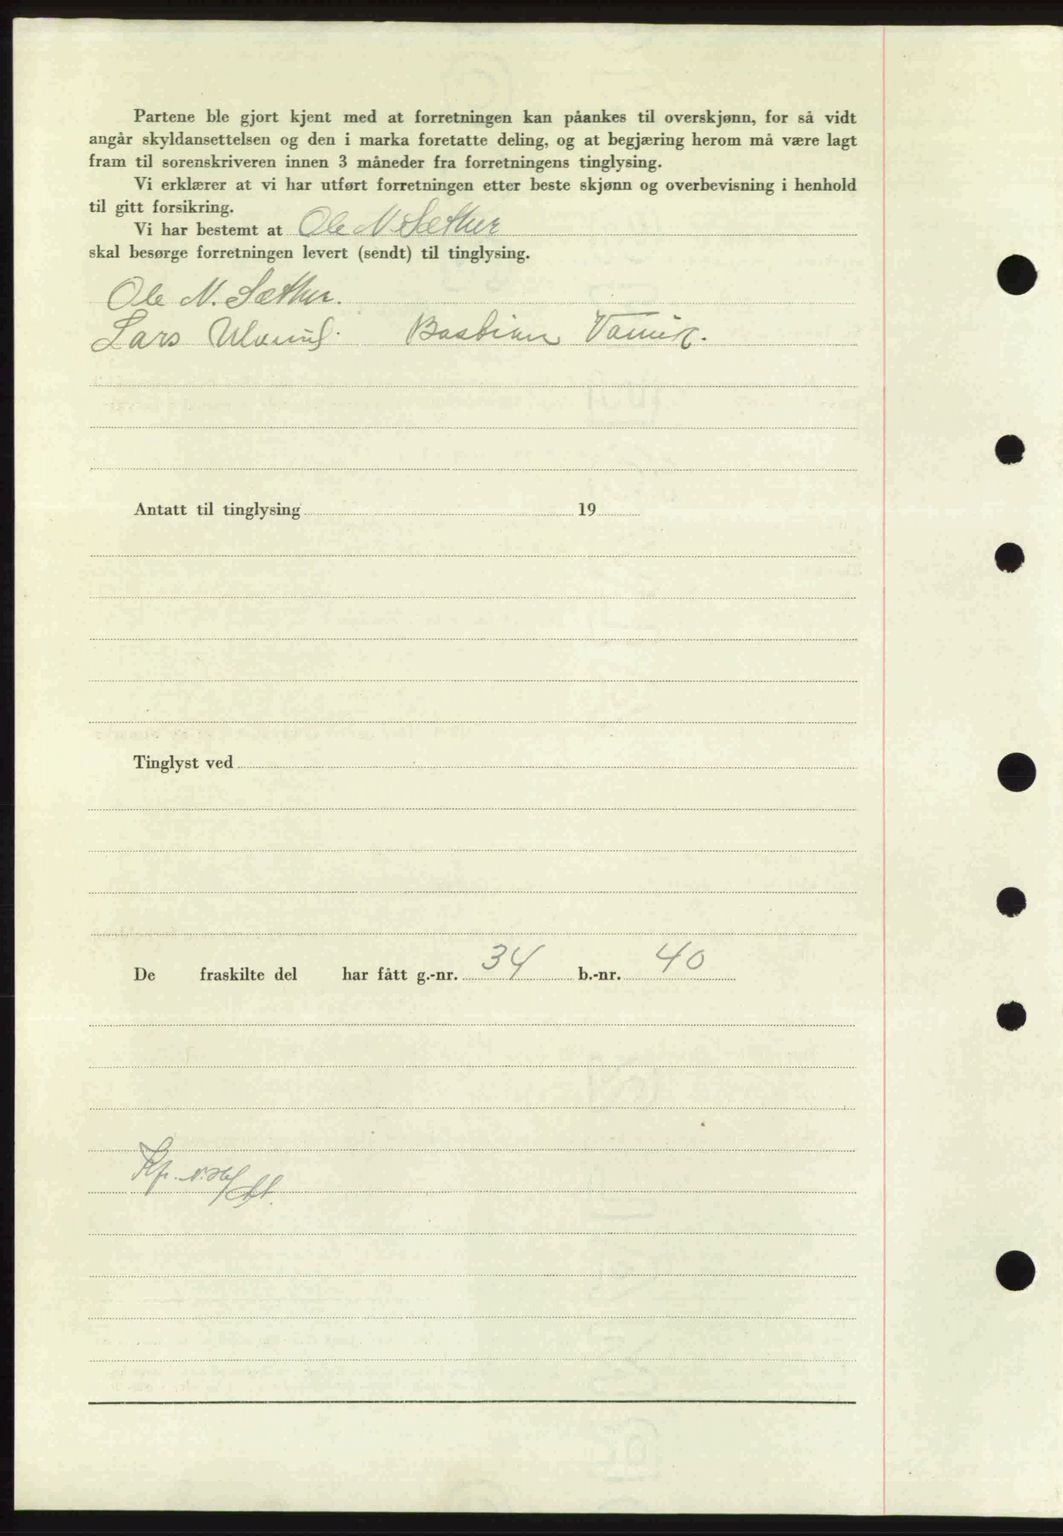 Partene ble gjort kjent med at forretningen kan påankes til overskjønn, for så vidt
angår skyldansettelsen og den i marka foretatte deling, og at begjæring herom må være lagt
fram til sorenskriveren innen 3 måneder fra forretningens tinglysing.
Vi erklærer at vi har utført forretningen etter beste skjønn og overbevisning i henhold
til gitt forsikring.
Vi har bestemt at Ole N. Sæther
skal besørge forretningen levert (sendt) til tinglysing.
Ole N. Sæther.
Lars Bastian
Antatt til tinglysing 19
Tinglyst ved
De fraskilte del har fått g.-nr. 34 b.-nr. 40